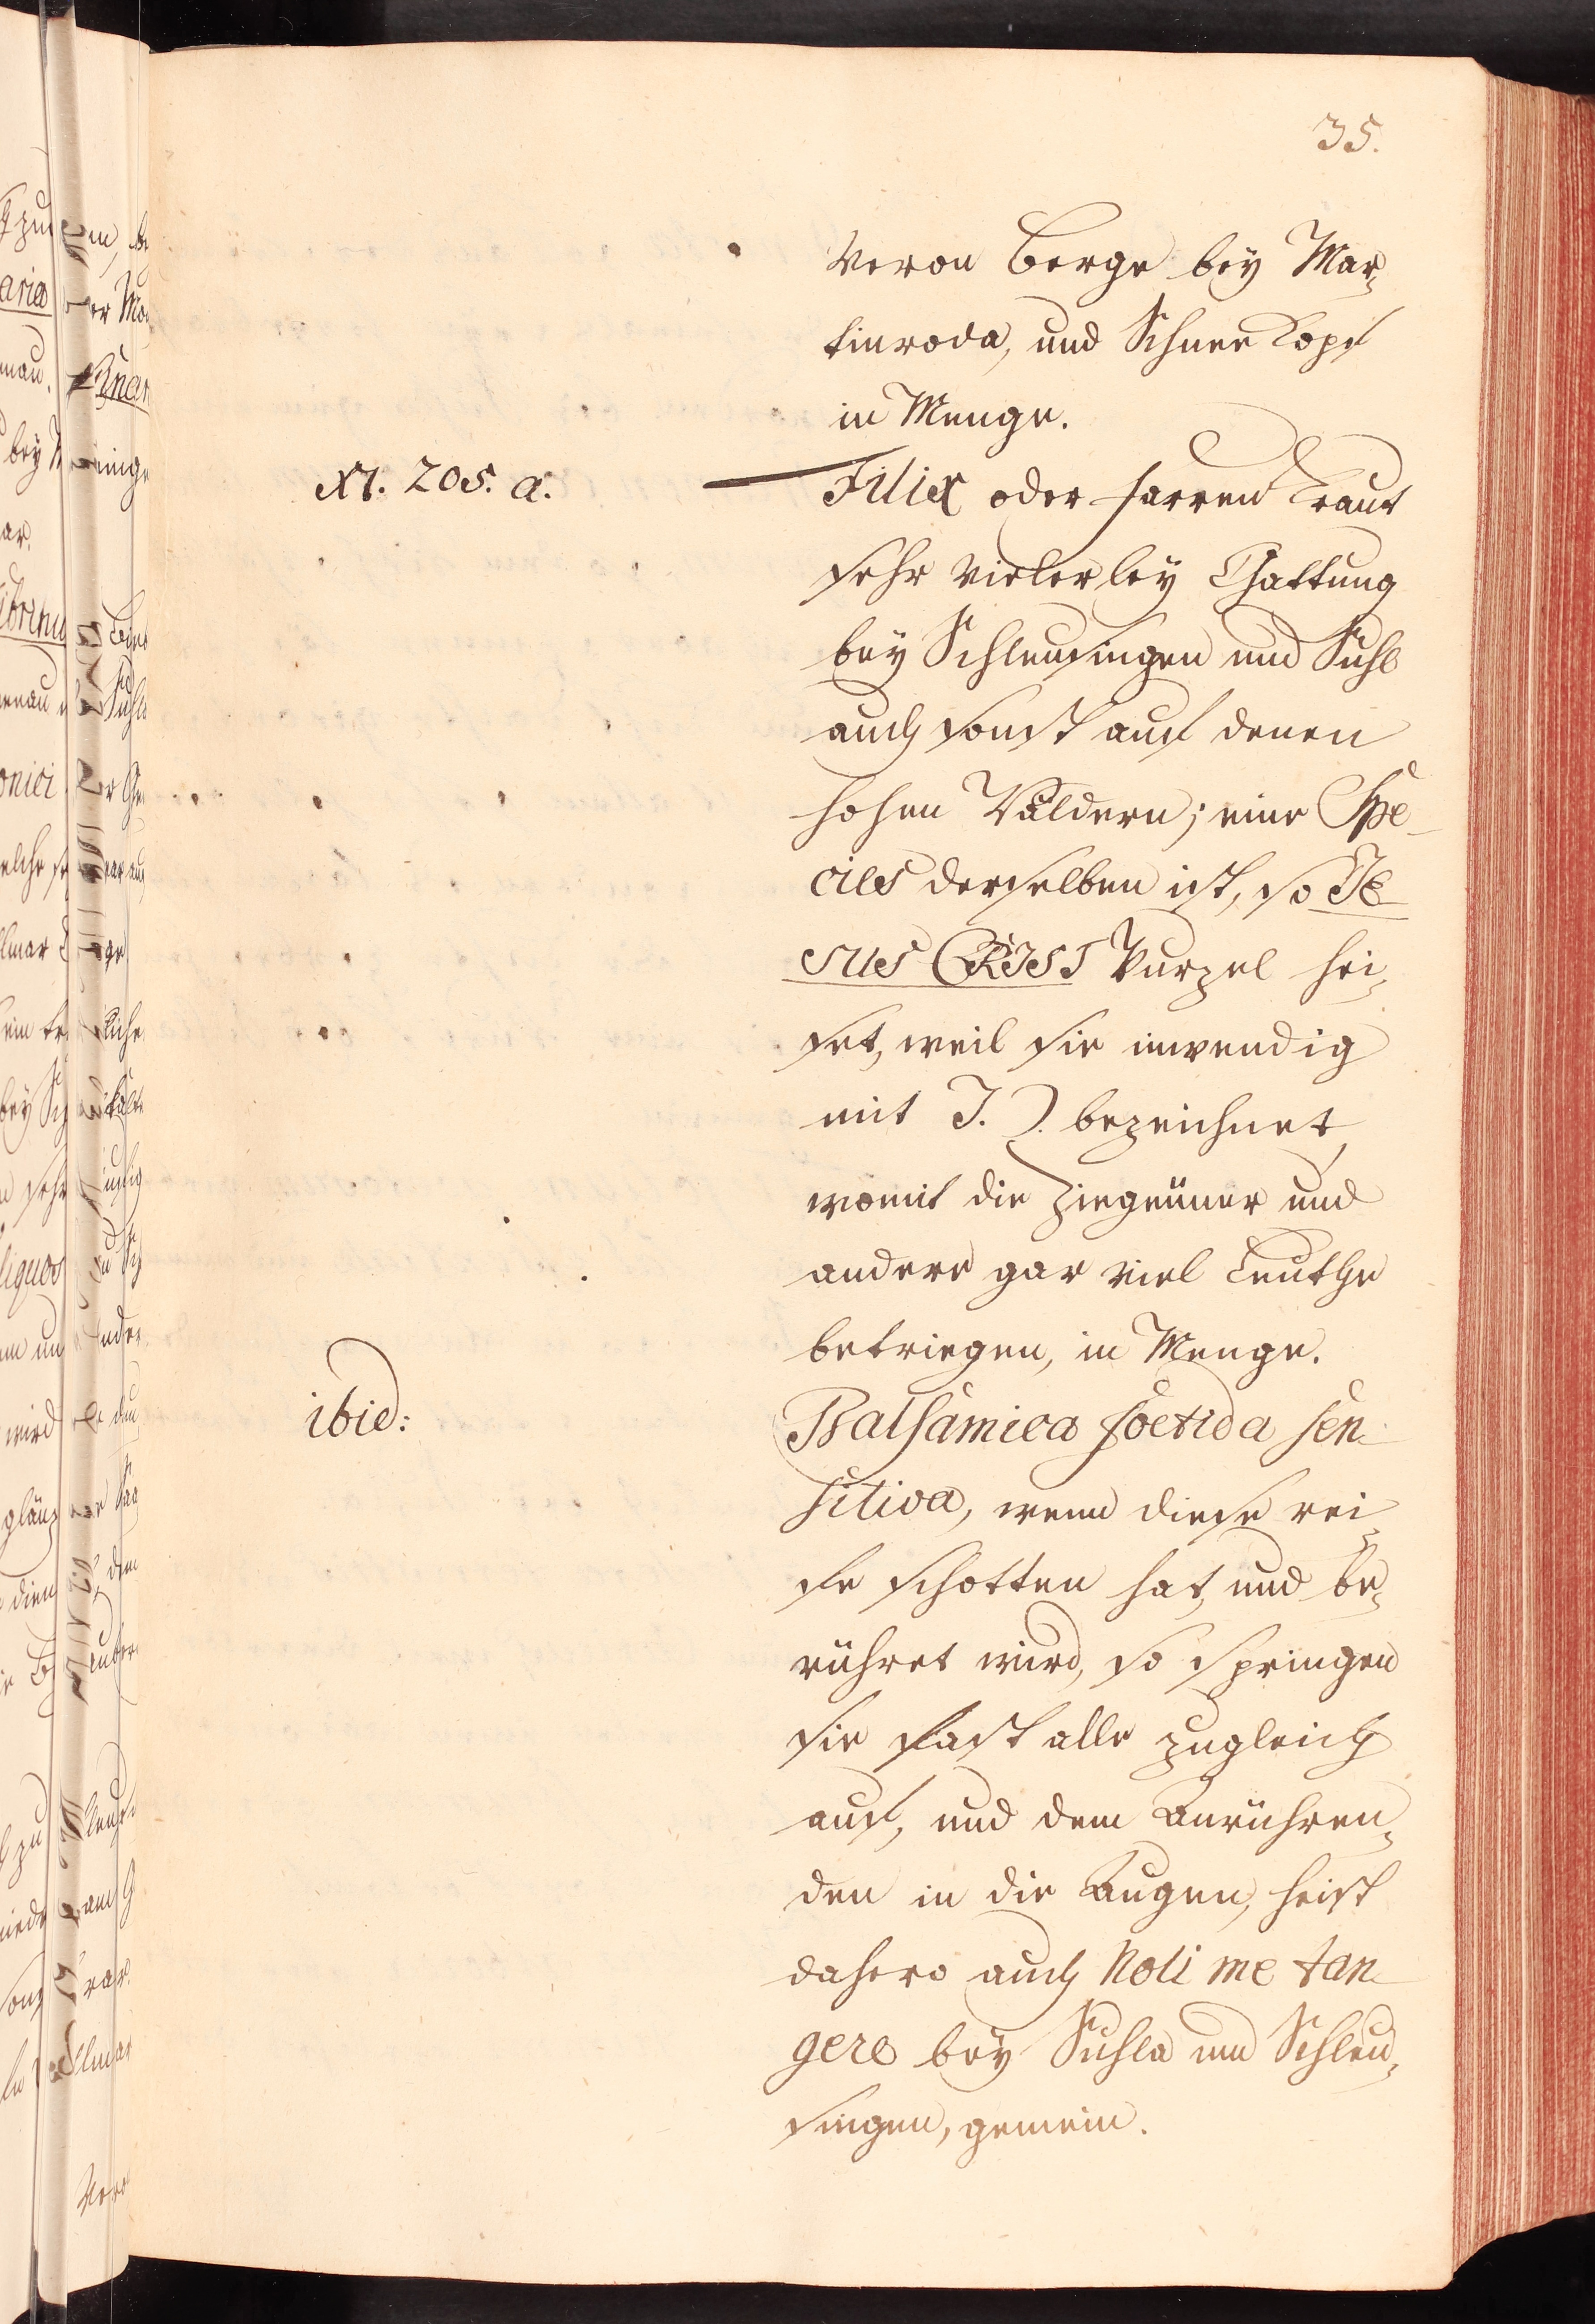 35.
Veron Berge bey Mar-
tinroda, und Schnee Kopf
in Menge.
XI. 205. a.
Filix oder farren Kraut
sehr vielerley Gattung
bey Schleusingen und Suhl
auch sonst auf denen
hohen Wäldern; eine Spe-
cies derselben ist, so JE-
SUS CHRIST Wurzel hei-
set, weil sie inwendig
mit J. C. bezeichnet,
womit die Ziegeuner und
andere gar viel Leuthe
betriegen, in Menge.
ibid:
Balsamica foetida sen-
sitiva, wenn diese rei-
fe schotten hat, und be-
rühret wird, so springen
sie fast alle zugleich
auf, und dem Anrühren-
den in die Augen, heist
dahero auch Noli me tan-
gere bey Suhla und Schleu-
singen, gemein.